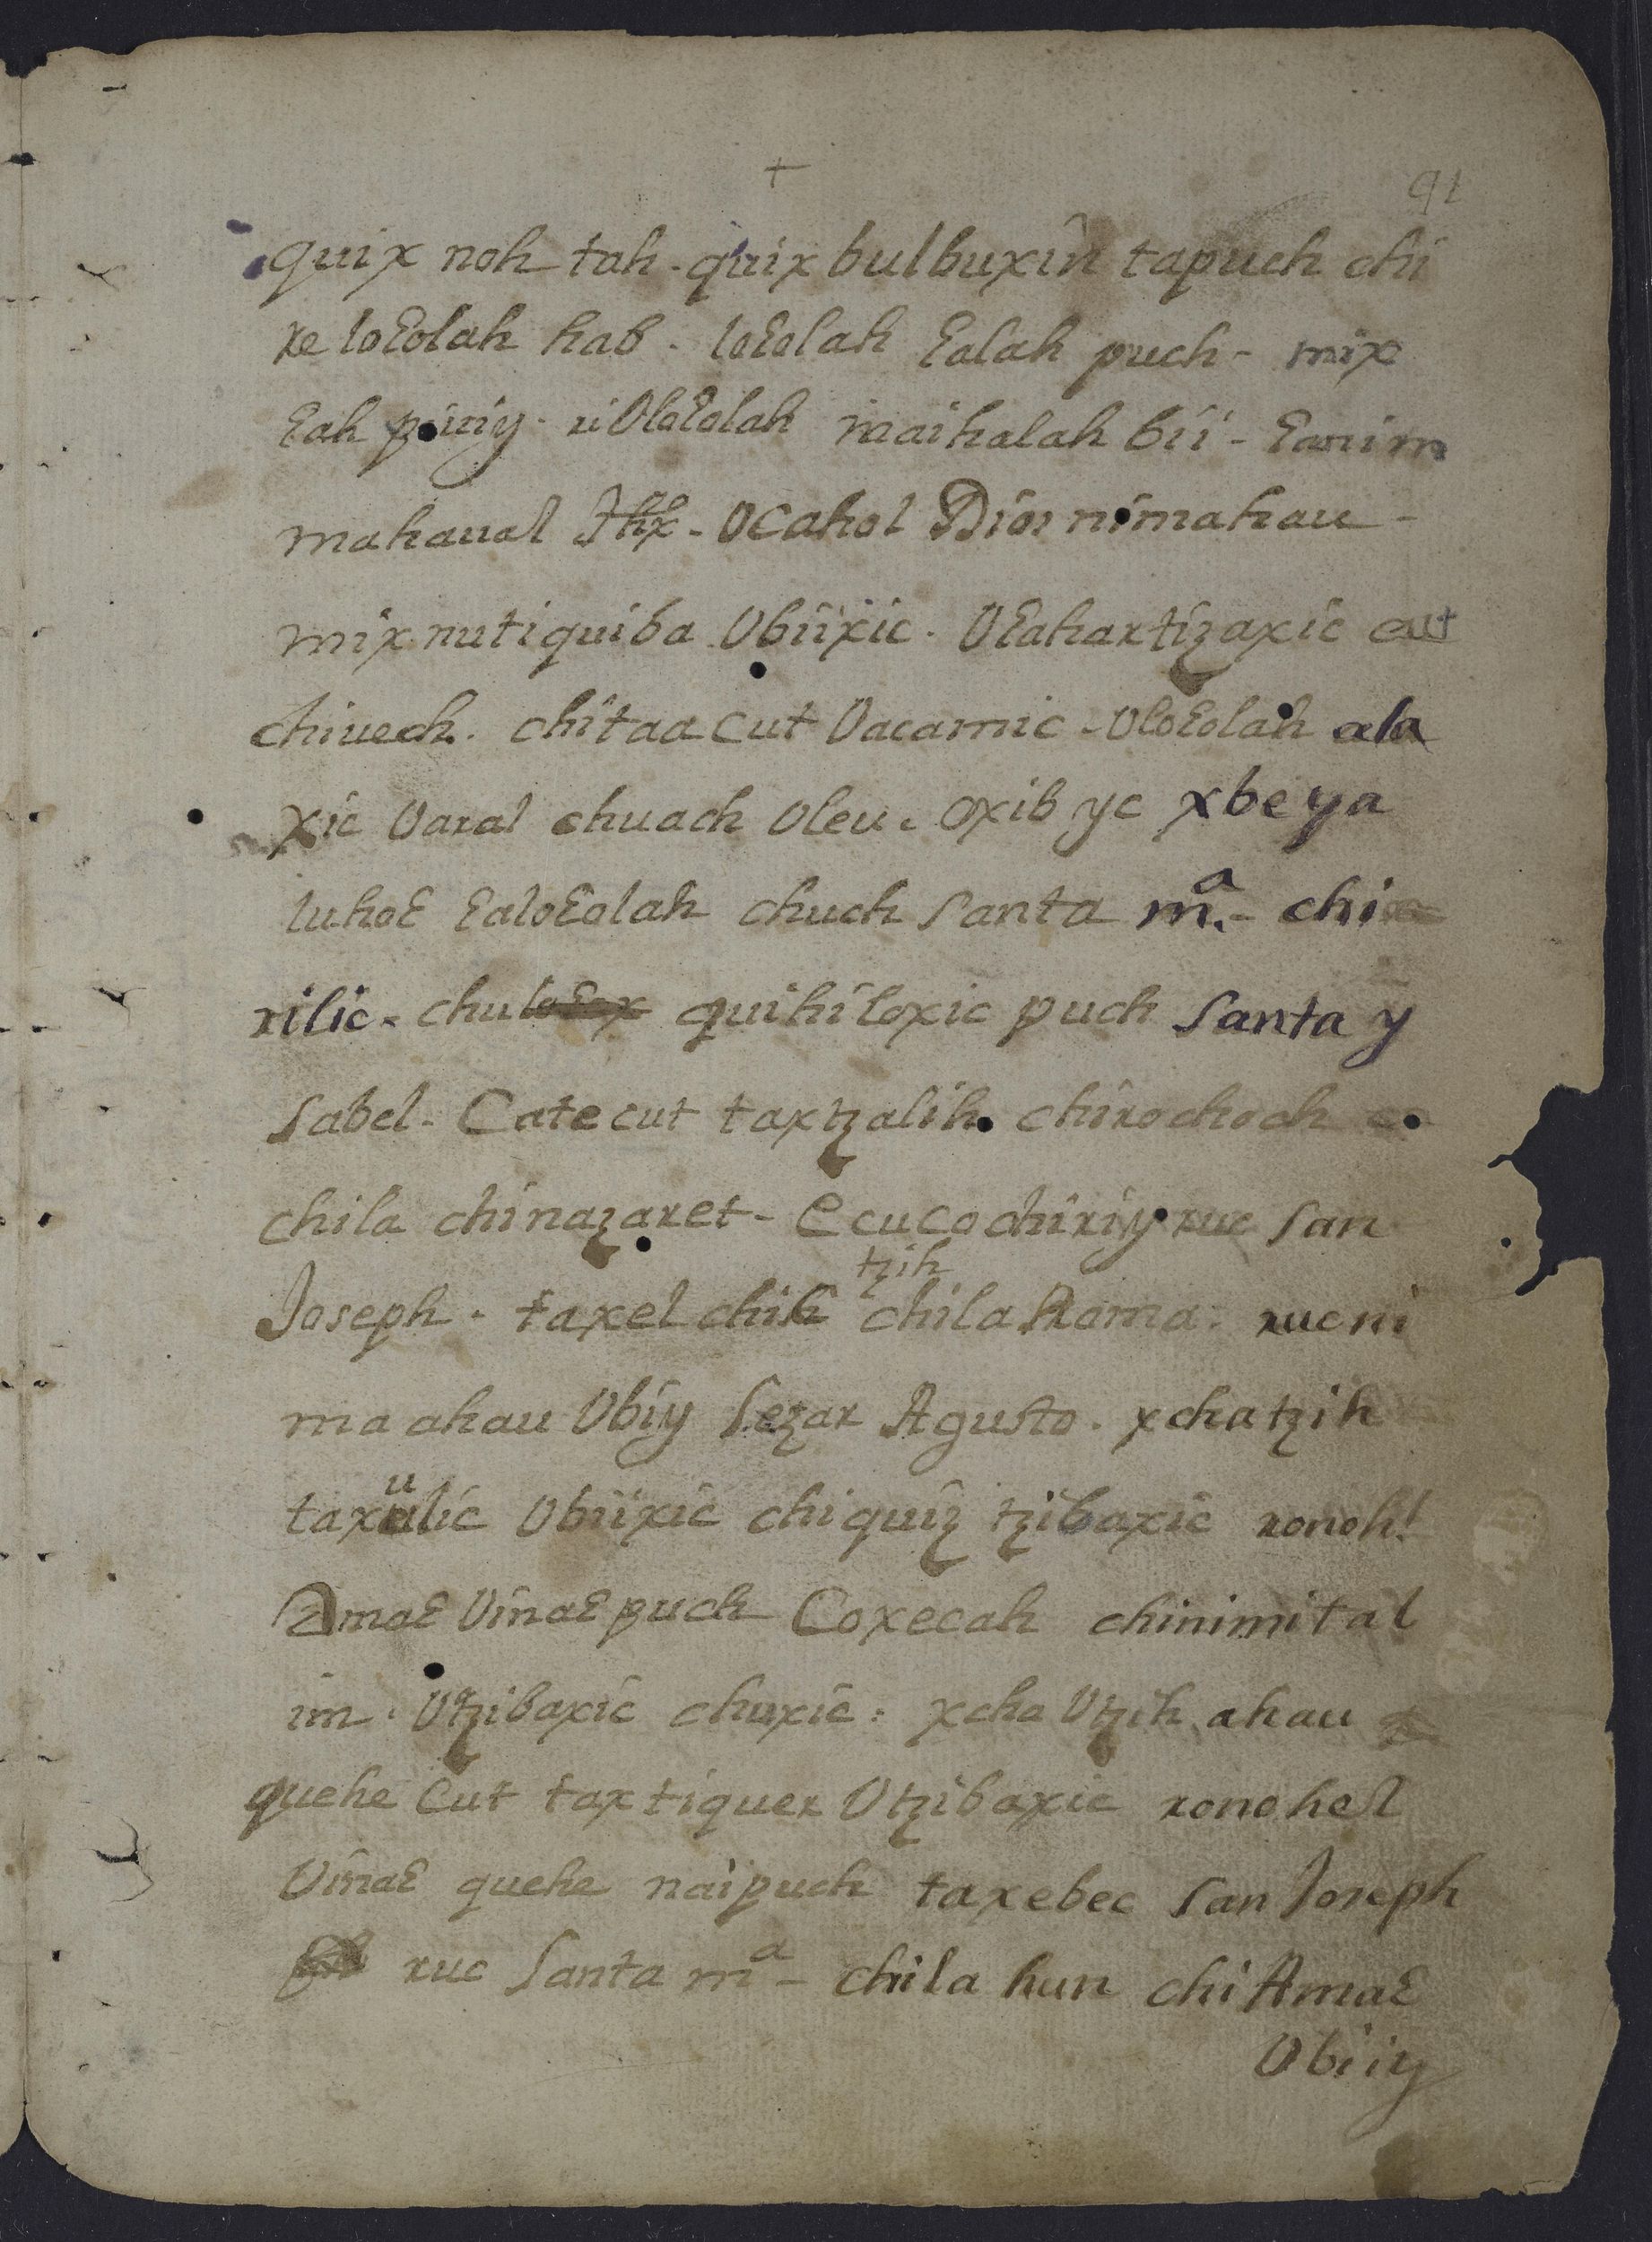 +
91
quix noh tah - quix bulbuxin tapuch chi
re loɛolah hab - loɛolah ɛalah puch - mix
ɛah ui Oloɛolah maihalah bii - ɛanim
mahaual Jhx - Ocahol Dios nimahau -
mix nutiquiba Ubiixic . Uɛahartizaxic cut
chiuech . chitaa cut Uacamic - Oloɛolah ala
xic Uaral chuach Uleu . oxib yc xbe ya
luhoɛ ɛaloɛolah chuch Santa mª. - chi
rilic - chu quihiloxic puch Santa y
Sabel - Cate cut taxtzalih chirochoch
chila chinazaret - Ecucochiriy ruc San
tzih
Joseph . taxel chih chila Roma : ruc ni
ma ahau Ubiy Sezar Agusto . xcha tzih
taxulic Ubiixic chiquiz tzibaxic ronoh!
Amaɛ Uinaɛ puch Coxecah chinimital
im . Utzibaxic chuxic : xcha Utzih ahau
quehe cut taxtiquer Utzibaxic ronohel
Uinaɛ quehe naipuch taxebec San Joseph
ruc Santa mª - chila hun chi Amaɛ
Ubiiy